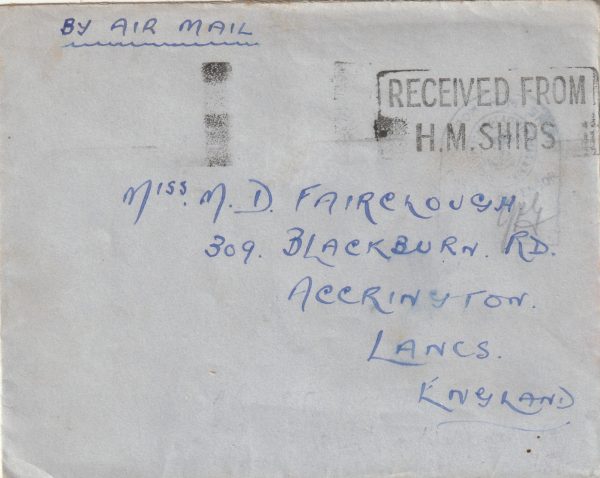 BY AIR MAIL
RECEIVED FROM
H.M. SHIPS
MISS. M. D. FAIRCLOUGH
309. BLACKBURN. RD.
ACCRINGTON.
LANCS.
ENGLAND